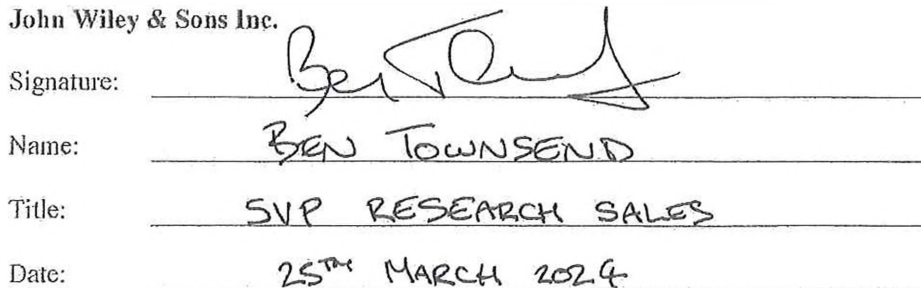 John Wiley & Sons Inc.
Signature: Ben T
Name: BEN TOWNSEND
Title: SVP RESEARCH SALES
Date: 25TH MARCH 2024